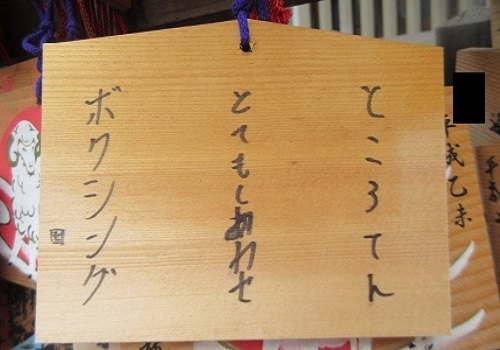 ところてん
とてもしあわせ
ボクシング
平成乙未